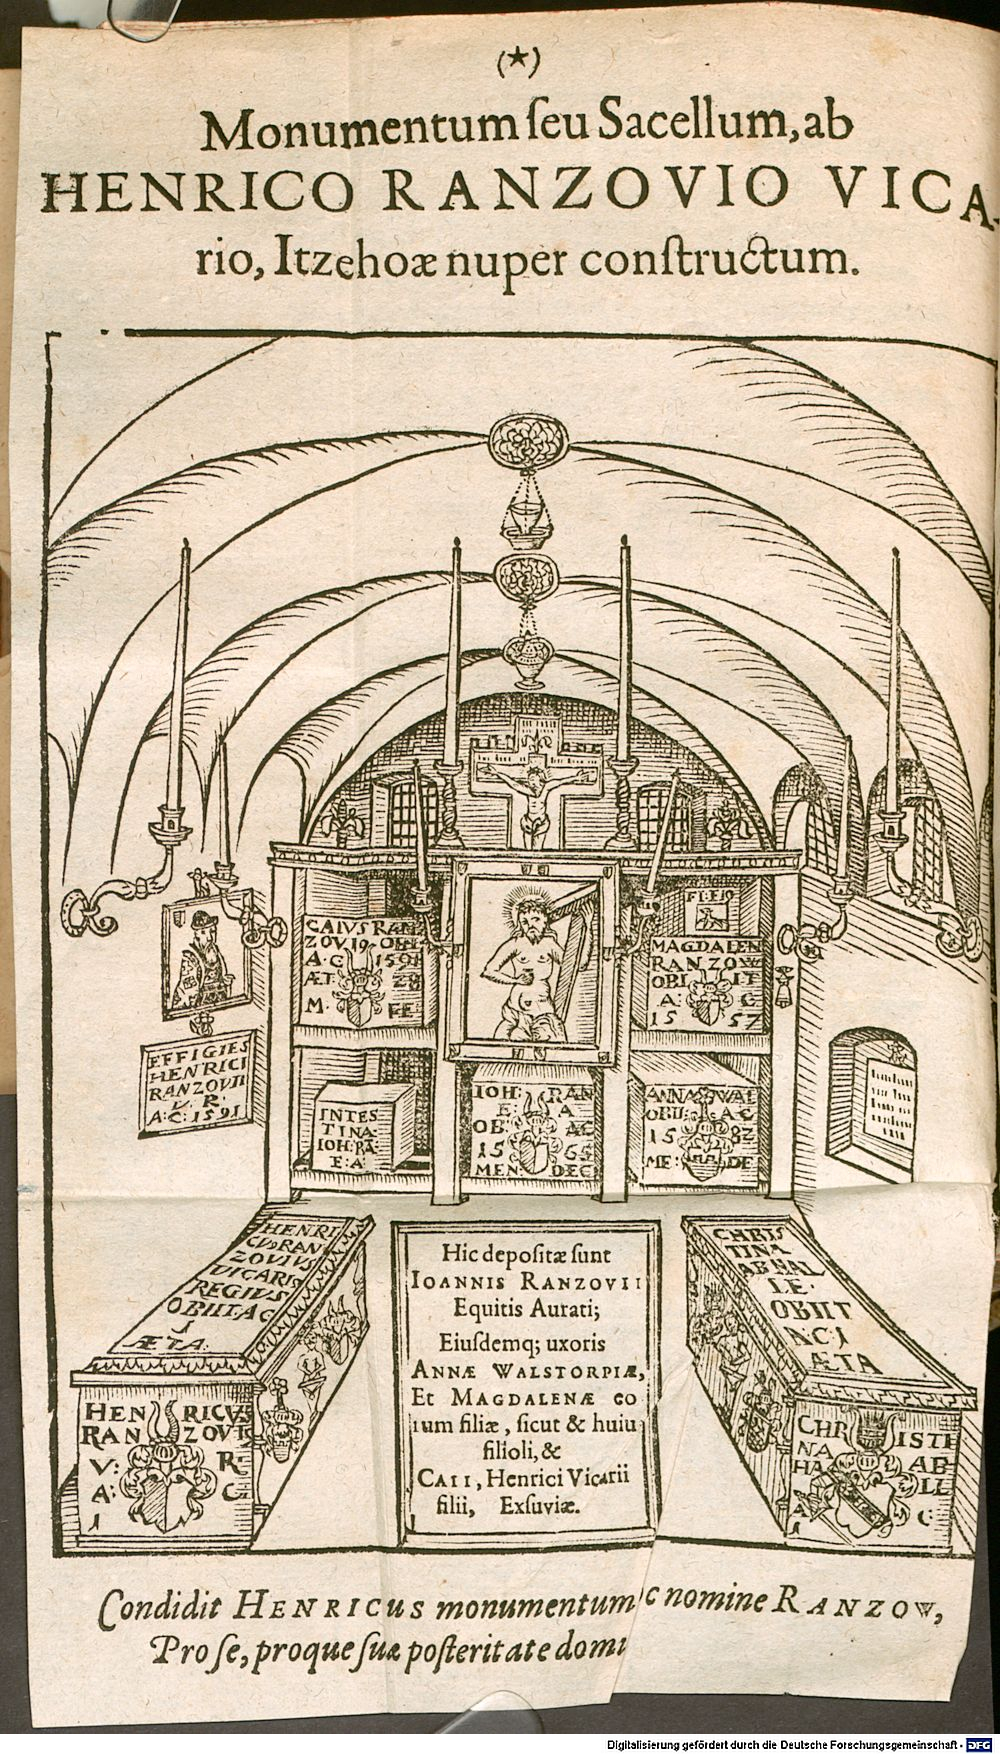 (★)
Monumentum ſeu Sacellum, ab
HENRICO RANZOVIO VICA-
rio, Itzehoæ nuper conſtructum.
CAIVS RAN
ZOVI9 OBII
A·C 1591
ÆT 28
M· FE
FI·EIO
MAGDALEN
RANZOW
OBI IT
A: C
15 57
EFFIGIES
HENRICI
RANZOVII
V. R.
A:C:1591
INTES
TINA·
IOH:RA
E:A
IOH: RAN
E: A
OB: AC
15 65
MEN: DEC
ANNA WAL
OBII: A C
15 82
ME: DE
HENRI
CV9 RAN
ZOVIVS
VICARIS
REGIVS
OBIIT·A C
1
ÆTA·
CHRIS
TINA
AB HAL
LE·
OBIIT
A C I
ÆTA
Hic depoſitæ ſunt
IOANNIS RANZOVII
Equitis Aurati;
Eiuſdemq; uxoris
ANNÆ WALSTORPIÆ,
Et MAGDALENÆ eo
rum filiæ, ſicut & huiu
filioli, &
CAII, Henrici Vicarii
filii, Exſuviæ.
HEN RICVS
RAN ZOVI9
V: R:
A: C
1
CHR ISTI
NA AB
HA LL
A C
1
Condidit HENRICUS monumentum c nomine RANZOW,
Pro ſe, proque ſuæ poſteritate domu
Digitalisierung gefördert durch die Deutsche Forschungsgemeinschaft - DFG